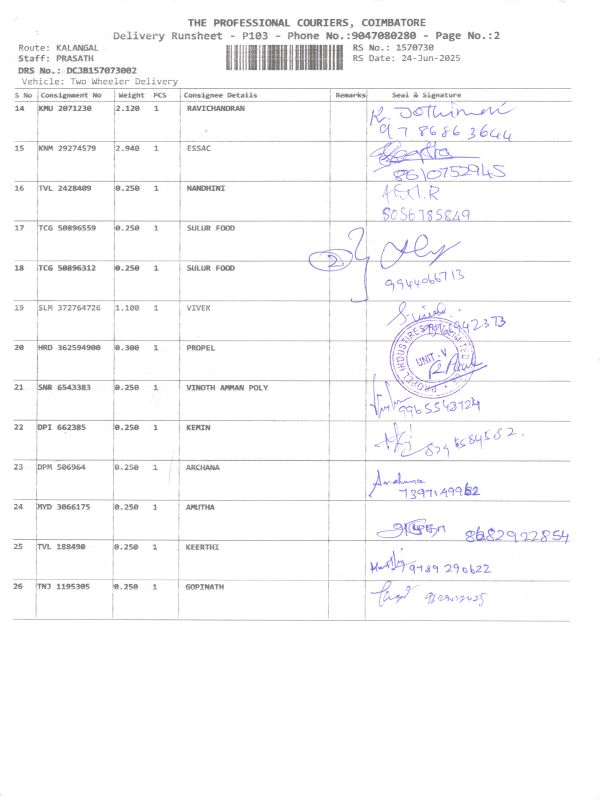 THE PROFESSIONAL COURIERS, COIMBATORE
Delivery Runsheet - P103 - Phone No.:9047080280 - Page No.:2
Route: KALANGAL RS No.: 1570730
Staff: PRASATH RS Date: 24-Jun-2025
DRS No.: DCJB157073002
Vehicle: Two Wheeler Delivery
S No Consignment No Weight PCS Consignee Details Remarks Seal & Signature
14 KMU 2071230 2.120 1 RAVICHANDRAN K. Jothimani
9786863644
15 KNM 29274579 2.940 1 ESSAC
8610752945
16 TVL 2428409 0.250 1 NANDHINI
8056785849
17 TCG 50896559 0.250 1 SULUR FOOD
18 TCG 50896312 0.250 1 SULUR FOOD 2
9944066713
19 SLM 372764726 1.100 1 VIVEK
20 HRD 362594900 0.300 1 PROPEL
PROPEL INDUSTRIES
UNIT - V
21 SNR 6543383 0.250 1 VINOTH AMMAN POLY
9965543724
22 DPI 662385 0.250 1 KEMIN
23 DPM 506964 0.250 1 ARCHANA Archana
7397149962
24 MYD 3066175 0.250 1 AMUTHA
8682922854
25 TVL 188490 0.250 1 KEERTHI
9789290622
26 TNJ 1195305 0.250 1 GOPINATH